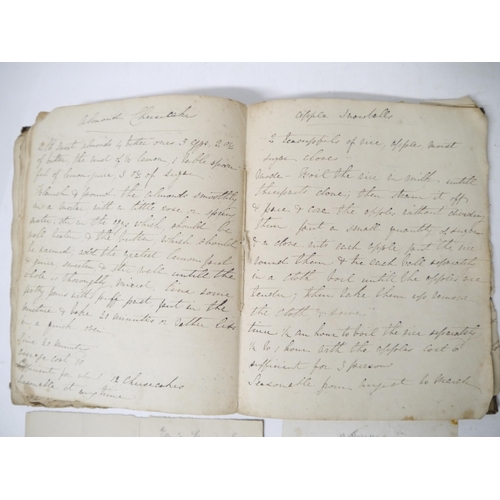 Almond Cheesecakes
¼ lb sweet almonds 4 bitter ones 3 eggs, 2 oz
of butter the rind of ¼ lemon 1 table spoon-
ful of lemon juice 3 oz of sugar
Blanch & pound the almonds smoothly
in a mortar with a little rose or spring
water stir in the eggs which should be
well beaten & the butter which should
be warmed, add the grated lemon peel
& juice sweeten & stir well until the
whole is thoroughly mixed. Line some
patty pans with puff past put in the
mixture & bake 20 minutes or rather less
in a quick oven
Time 20 minutes
average cost 10
Sufficient for about 12 Cheesecakes
Seasonable at anytime
Apple Snowballs
2 teacupfuls of rice, apples, moist
sugar cloves
Mode - Boil the rice in milk until
threeparts done, then strain it off
& pare & core the apples without dividing
them put a small quantity of sugar
& a clove into each apple put the rice
round them & tie each ball separately
in a cloth boil until the apples are
tender, then take them up remove
the cloth & serve.
time ½ an hour to boil the rice separately
½ to 1 hour with the apples Cost
sufficient for 3 persons
Seasonable from August to March